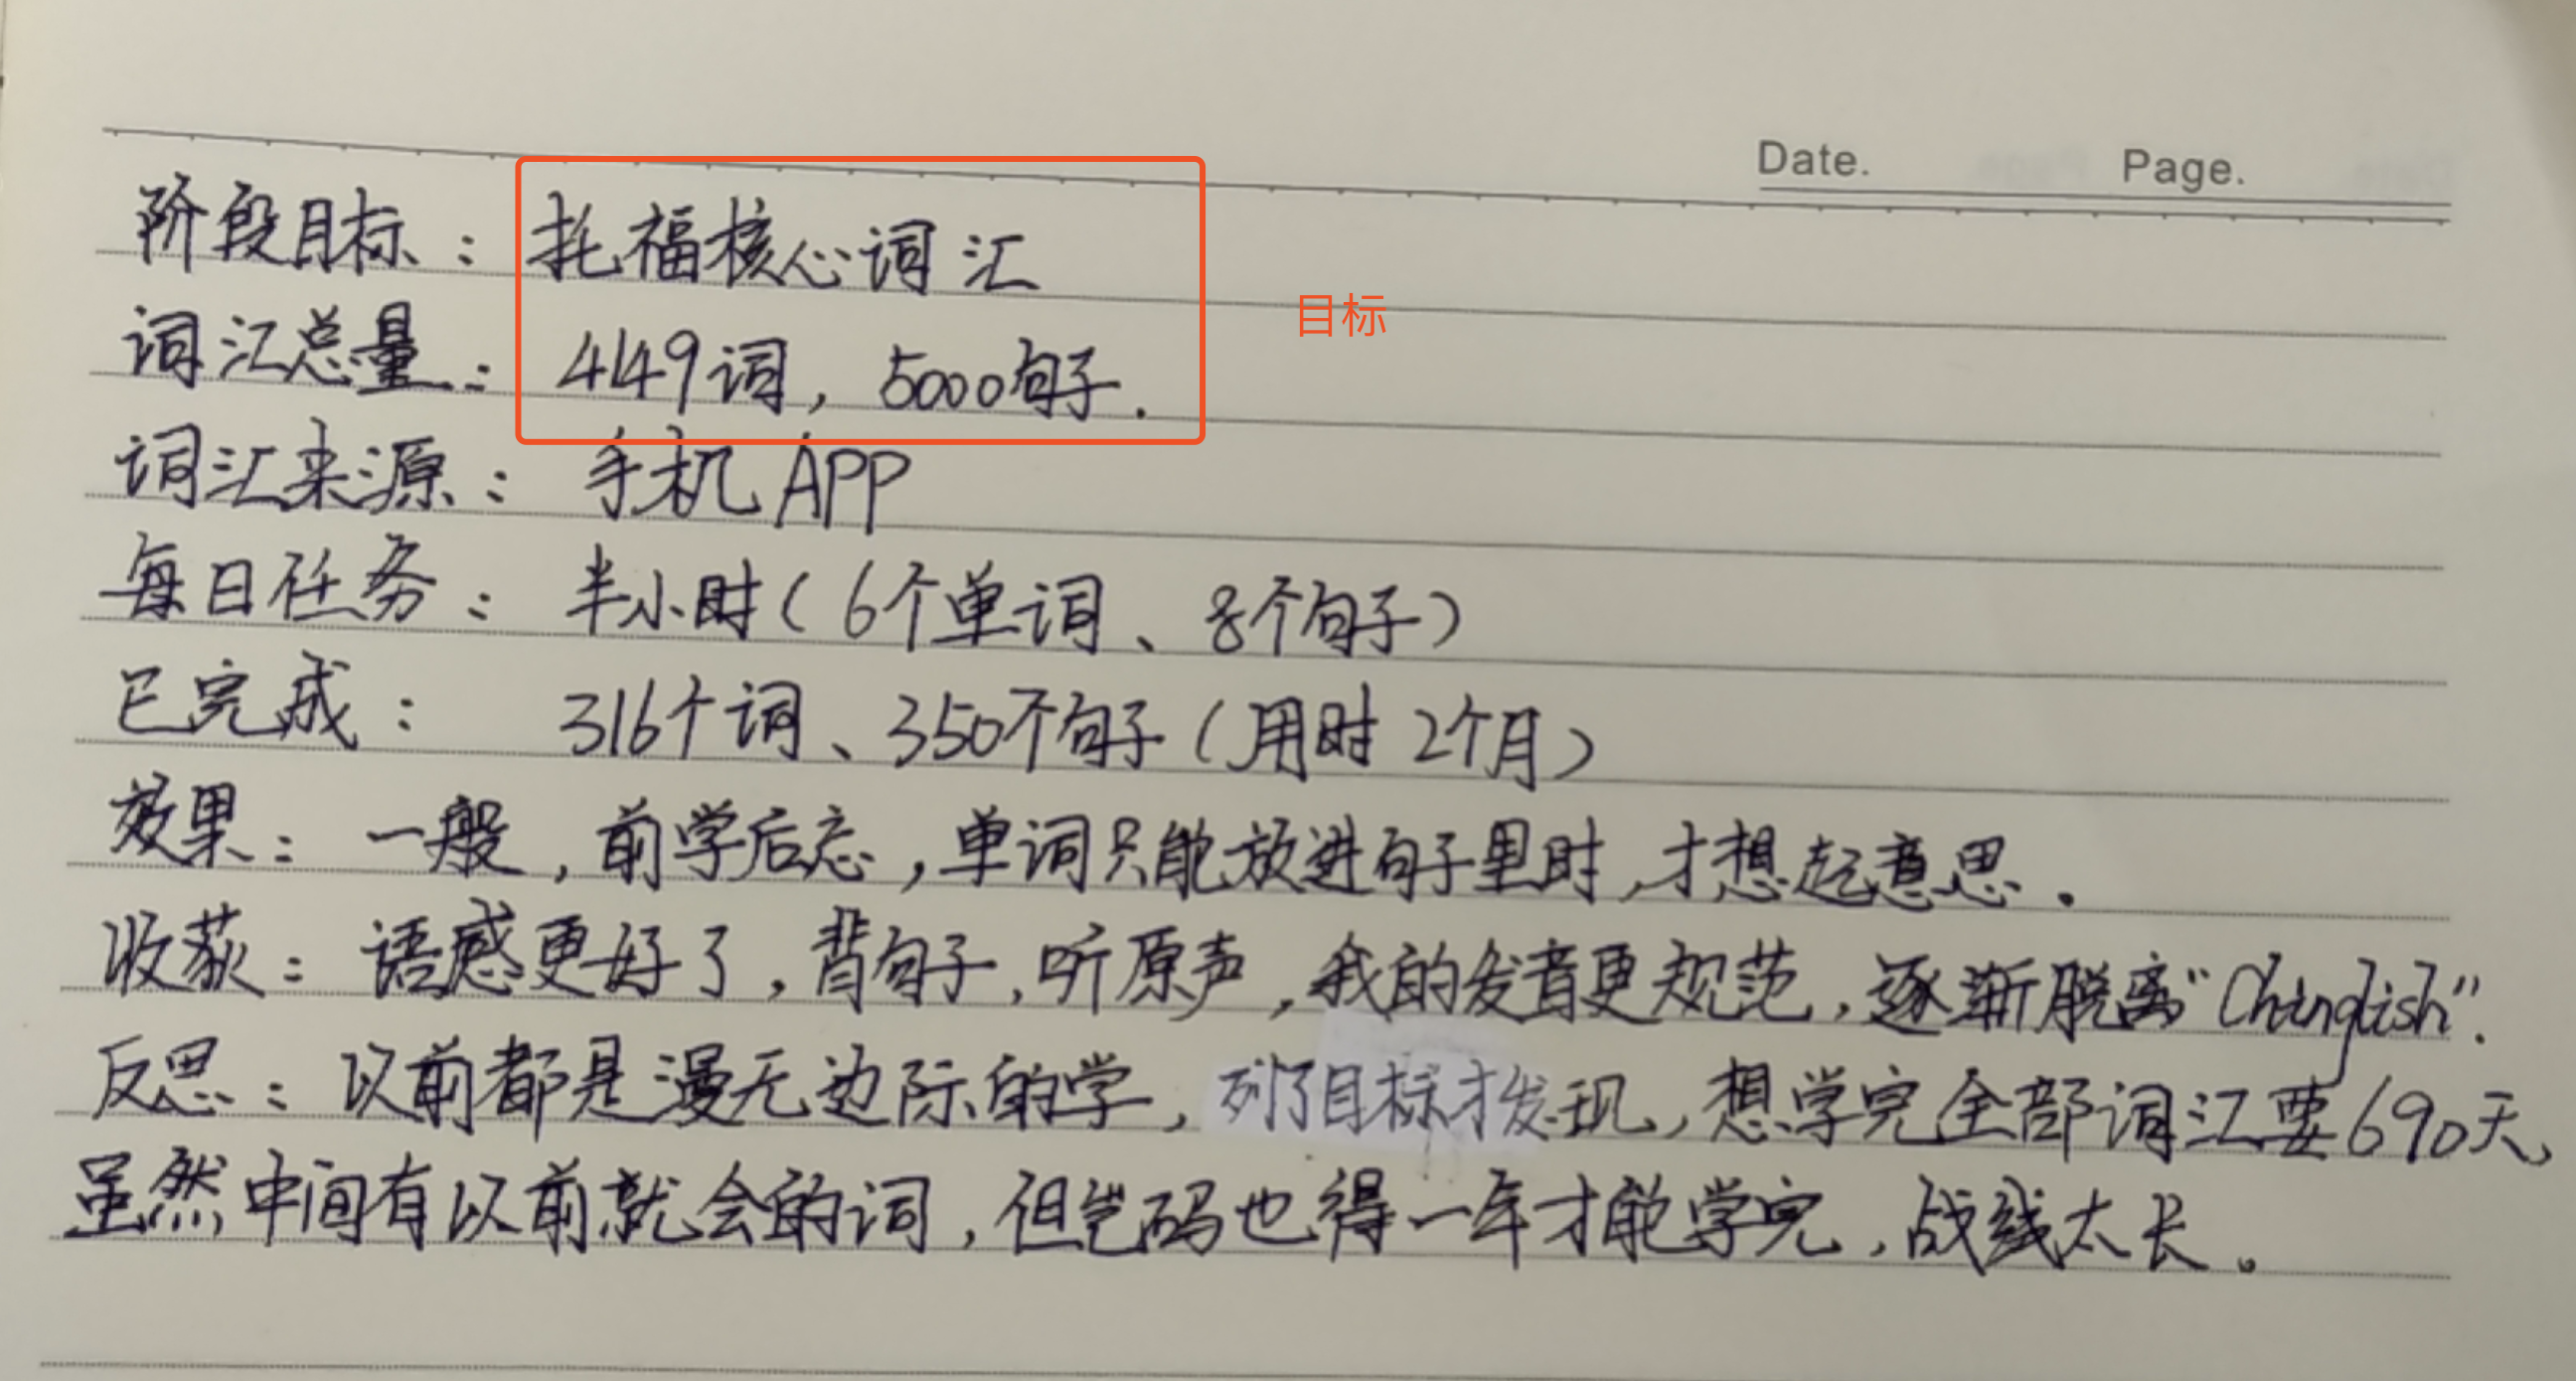 Date. Page.
阶段目标：托福核心词汇
目标
词汇总量：4149词，5000句子.
词汇来源：手机APP
每日任务：半小时（6个单词、8个句子）
已完成：316个词、350个句子（用时2个月）
效果：一般，前学后忘，单词只能放进句子里时，才想起意思.
收获：语感更好了，背句子，听原声，我的发音更规范，逐渐脱离“Chinglish”.
反思：以前都是漫无边际的学，列了目标才发现，想学完全部词汇要690天，
虽然中间有以前就会的词，但起码也得一年才能学完，战线太长。